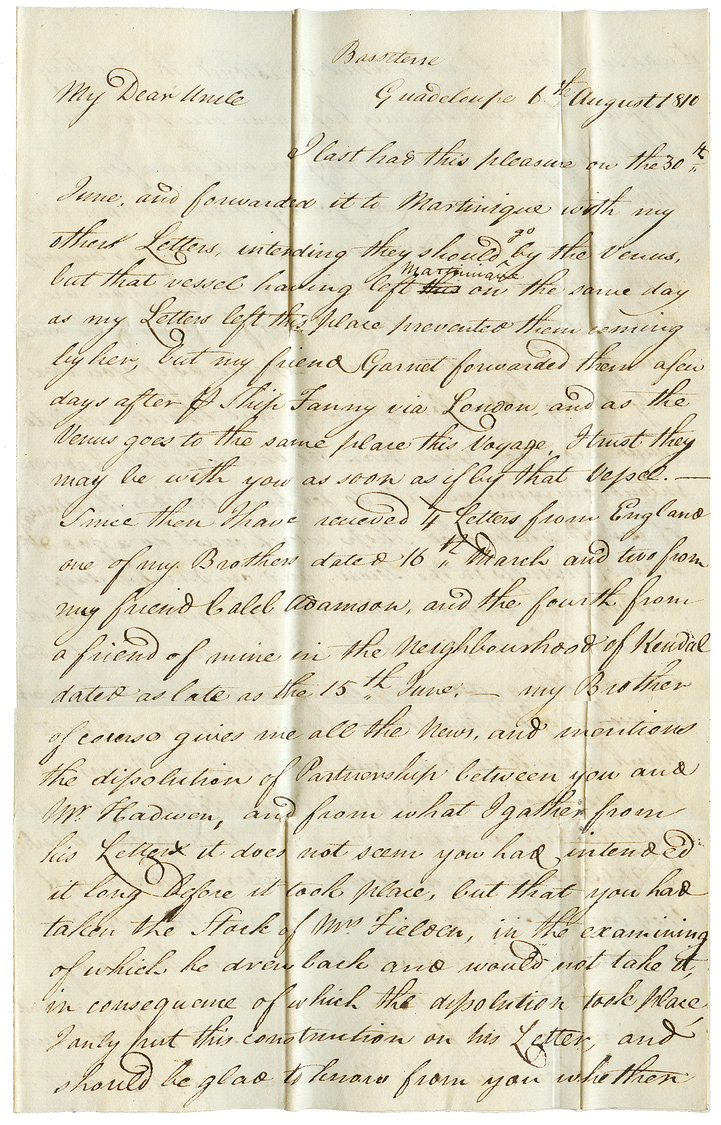 Bassterre
My Dear Uncle Guadeloupe 6th August 1810
I last had this pleasure on the 30th
June, and forwarded it to Martinique with my
other Letters, intending they should go by the Venus,
but that vessel having left this Martinique on the same day
as my Letters left this place prevented them coming
by her, but my friend Garnet forwarded them a few
days after ⅌ Ship Fanny via London, and as the
Venus goes to the same place this Voyage, I trust they
may be with you as soon as if by that Vessel. —
Since then I have recieved 4 Letters from England
one of my Brothers dated 16th March and two from
my friend Caleb Adamson, and the fourth from
a friend of mine in the Neighbourhood of Kendal
dated as late as the 15th June. — my Brother
of course gives me all the News, and mentions
the dissolution of Partnership between you and
Mr. Hadwen, and from what I gather from
his Letter it does not seem you had intended
it long before it took place, but that you had
taken the Stock of Mrs Fielden, in the examining
of which he drew back and would not take it,
in consequence of which the dissolution took place,
I only put this construction on his Letter, and
should be glad to know from you whether